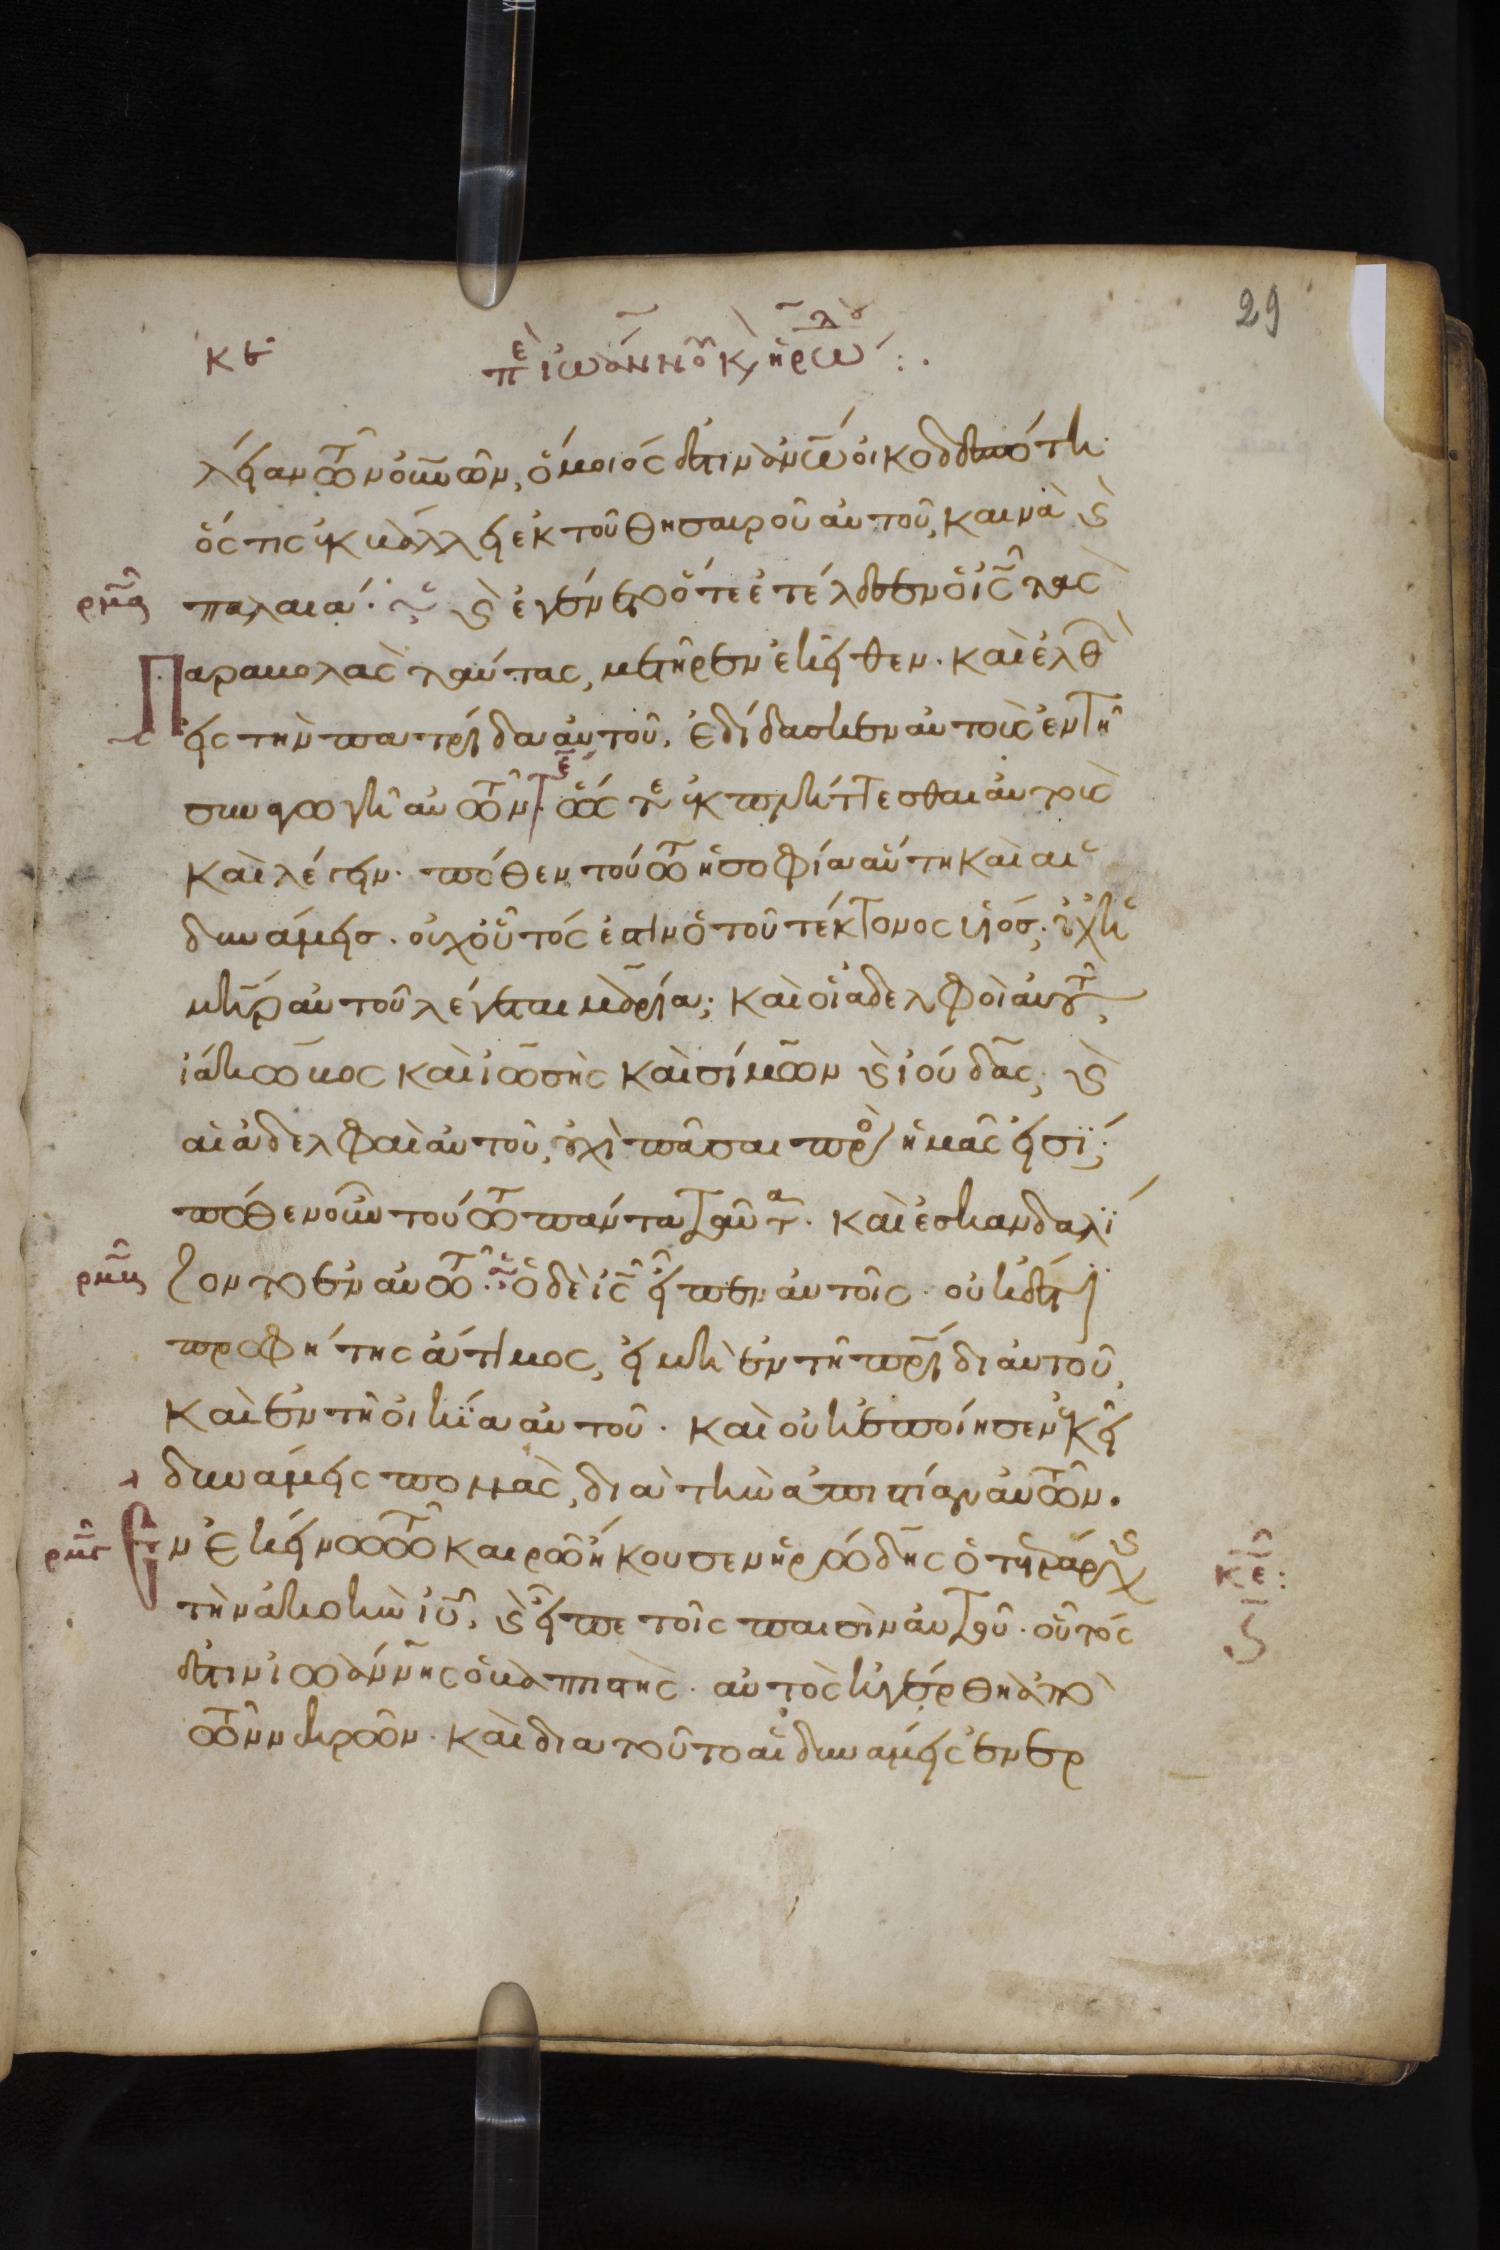 29
κε
πε ἰωάννου κ ηρω
λείαν τῶν οὐνῶν, ὅμοιός ἐστιν ἀνω οἰκοδεσπότη
ὅς τις ἐκβάλλει ἐκ τοῦ θησαυροῦ αὐτοῦ, καινὰ ϗ
ρμα παλαιά. ϗ ἐγένετο ὅτε ἐτέλεσεν ὁ ις τὰς
παραβολὰς ταύτας, μετῆρεν ἐκεῖθεν. καὶ ἐλθ
εἰς τὴν πατρίδα αὐτοῦ, ἐδίδασκεν αὐτοὺς ἐν τῇ
συναγωγῇ αὐτῶν. ὥστε ἐκπλήττεσθαι αὐτοὺς
καὶ λέγειν. πόθεν τούτω ἡ σοφία αὕτη καὶ αἱ
δυνάμεις. οὐχ οὗτός ἐστιν ὁ τοῦ τέκτονος υἱός; οὐχ ἡ
μηρ αὐτοῦ λέγεται μαρία; καὶ οἱ ἀδελφοὶ αὐτοῦ,
ἰάκωβος καὶ ἰωσῆς καὶ σίμων ϗ ἰούδας, ϗ
αἱ ἀδελφαὶ αὐτοῦ, οὐχὶ πᾶσαι πρὸς ἡμᾶς εἰσϊ;
πόθεν οὖν τούτω πάντα ταῦτα. καὶ ἐσκανδαλϊ
ρμβ ζοντο ἐν αὐτῶ. ὁ δὲ ις εἶπεν αὐτοῖς. οὐκ ἔστι
προφήτης ἄτιμος, εἰ μὴ ἐν τῇ πρίδι αὐτοῦ,
καὶ ἐν τῇ οἰκίᾳ αὐτοῦ. καὶ οὐκ ἐποίησεν ἐκεῖ
δυνάμεις πολλὰς, διὰ τὴν ἀπιστίαν αὐτῶν.
ρμγ ἐν ἐκείνω τῶ καιρῶ ἤκουσεν ἡρώδης ὁ τετράρχης κε
τὴν ἀκοὴν ιυ, ϗ εἶπε τοῖς παισὶν αὐτοῦ. οὗτός
ἐστιν ἰωάννης ὁ βαπτιστὴς. αὐτὸς ἠγέρθη ἀπὸ
τῶν νεκρῶν. καὶ διὰ τοῦτο αἱ δυνάμεις ἐνερ